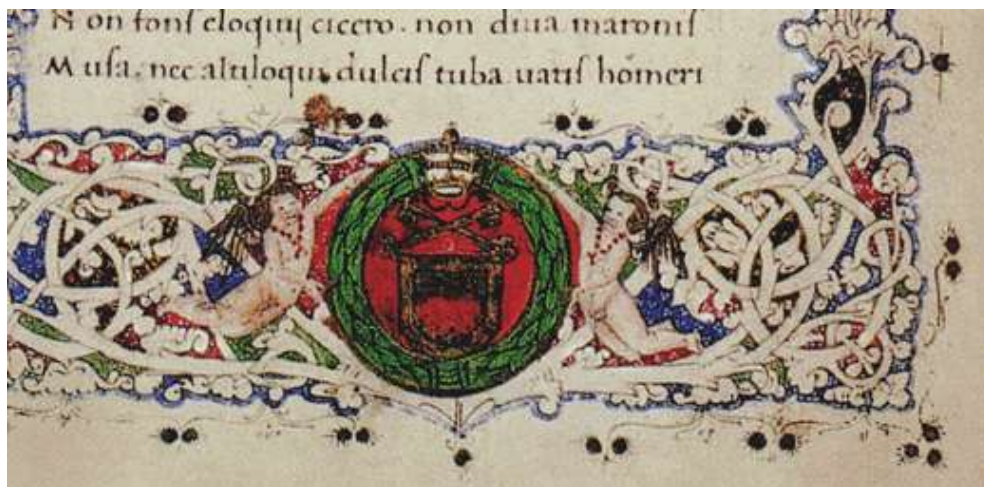 N on fonſ eloquij cicero. non diua maroniſ
M uſa. nec altiloqui dulciſ tuba uatiſ homeri